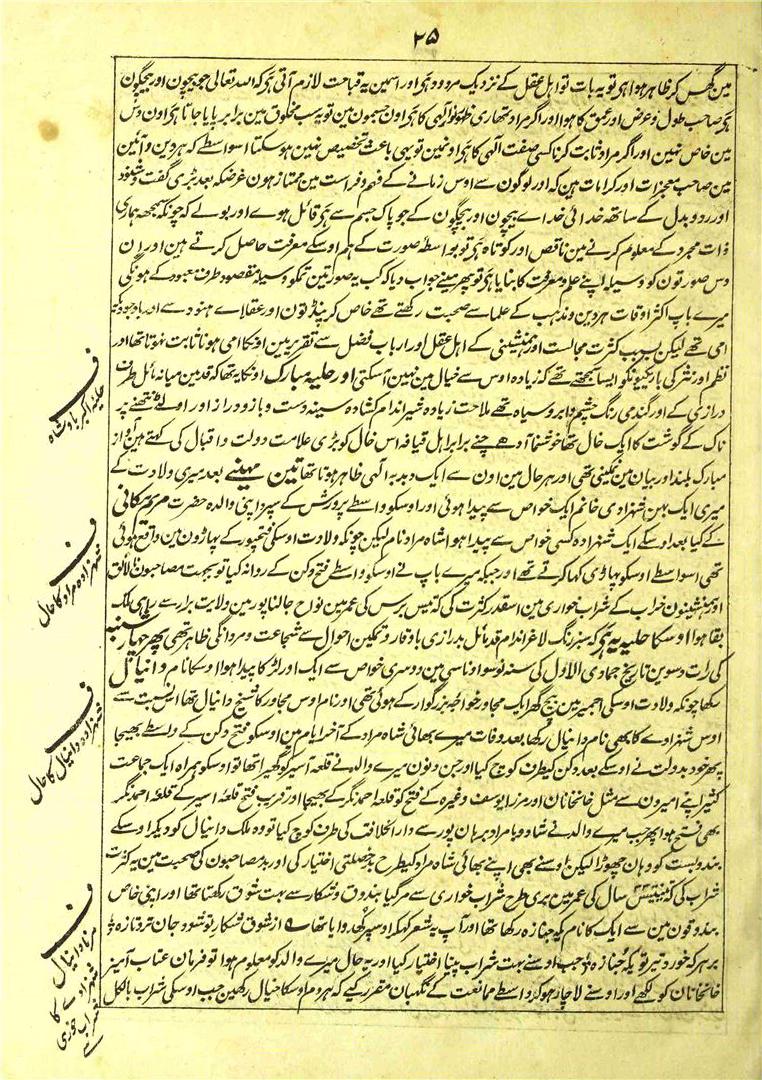 ۲۵
مین گھس کر ظاہر ہوا ہی تو یہ بات تو اہل عقل کے نزدیک مردود ہی اور اسمین یہ قباحت لازم آتی ہی کہ اللہ تعالی جو بیچون اور بیچگون
ہی صاحب طول و عرض اور عمق کا ہوا اور اگر مراد تمھاری ظہور نور الٰہی کا ہی اون جسمون مین تو یہ سب مخلوق مین برابر پایا جاتا ہی اون دس
مین خاص نہین اور اگر مراد ثابت کرنا کسی صفت الٰہی کا ہی اونمین تو یہی باعث تخصیص نہین ہو سکتا اسواسطے کہ ہر دین و آئین
مین صاحب معجزات اور کرامات ہین کہ اور لوگون سے اوس زمانے کے فہم و فراست مین ممتاز ہون غرضکہ بعد بڑی گفت و شنود
اور رد و بدل کے ساتھ خدائی خداے بیچون اور بیچگون کے جو پاک جسم سے ہی قائل ہوے اور بولے کہ چونکہ سمجھہ ہماری
ذات مجرد کے معلوم کرنے مین ناقص اور کوتاہ ہی تو بواسطہ صورت کے ہم اوسکے معرفت حاصل کرتے ہین اور ان
دس صورتون کو وسیلہ اپنے علم و معرفت کا بنایا ہی تو پھر مینے جواب دیا کہ کب یہ صورتین تمکو وسیلہ مقصود طرف معبود کے ہونگی
میرے باپ اکثر اوقات ہر دین و مذہب کے علما سے صحبت رکھتے تھے خاص کر پنڈتون اور عقلاے ہنود سے اور باوجودیکہ
امی تھے لیکن بسبب کثرت مجالست اور ہمنشینی کے اہل عقل اور ارباب فضل سے تقریر مین اونکا امی ہونا ثابت نہوتا تھا اور
نظم اور نثر کی باریکیونکو ایسا سمجھتے تھے کہ زیادہ اوس سے خیال مین نہین آسکتی اور حلیہ مبارک اونکا یہ تھا کہ قد مین میانہ مائل طرف
درازی کے اور گندمی رنگ چشم و ابرو سیاہ تھے ملاحت زیادہ شیر اندام کشادہ سینہ دست و بازو دراز اور اولٹے نتھنے پر
ناک کے گوشت کا ایک خال تھا خوشنما آدھے چنے برابر اہل قیافہ اس خال کو بڑی علامت دولت و اقبال کی کہتے ہین آواز
مبارک بلند اور بیان مین نمکینی تھی اور ہر حال مین اون سے ایک دبدبہ الٰہی ظاہر ہوتا تھا تین مہینے بعد میری ولادت کے
میری ایک بہن شہزادی خانم ایک خواص سے پیدا ہوئی اور اوسکو واسطے پرورش کے سپرد اپنی والدہ حضرت مریم مکانی
کے کیا بعد اوسکے ایک شہزادہ کسی خواص سے پیدا ہوا شاہ مراد نام لیکن چونکہ ولادت اوسکی فتحپور کے پہاڑون مین واقع ہوئی
تھی اسواسطے اوسکو پہاڑی کہا کرتے تھے اور جبکہ میرے باپ نے اوسکو واسطے فتح دکن کے روانہ کیا تو بسبب مصاحبون نالائق
اور ہمنشینون خراب کے شراب خواری مین اسقدر کثرت کی کہ تیس برس کی عمر مین نواح جالناپور مین ولایت برار سے راہی ملک
بقا ہوا اوسکا حلیہ یہ ہی کہ سبز رنگ لاغر اندام قد مائل بدرازی باوقار و تمکین احوال سے شجاعت و مردانگی ظاہر تھی پھر چہار شنبہ
کی رات دسوین تاریخ جمادی الاول کی سنہ نو سو اوناسی مین دوسری خواص سے ایک اور لڑکا پیدا ہوا اوسکا نام دانیال
رکھا چونکہ ولادت اوسکی اجمیر مین بیچ گھر ایک مجاور خواجہ بزرگوار کے ہوئی تھی اور نام اوس مجاور کا شیخ دانیال تھا اس نسبت سے
اوس شہزادے کا بھی نام دانیال رکھا بعد وفات میرے بھائی شاہ مراد کے آخر ایام مین اوسکو فتح دکن کے واسطے بھیجا
پھر خود بدولت نے اوسکے بعد دکن کیطرف کوچ کیا اور جن دنون میرے والد نے قلعہ آسیر کو گھیرا تھا تو اوسکو ہمراہ ایک جماعت
کثیر اپنے امیرون سے مثل خانخانان اور مرزا یوسف وغیرہ کے فتح کو قلعہ احمد نگر کے بھیجا اور قریب فتح قلعہ اسیر کے قلعہ احمد نگر
بھی فتح ہوا پھر جب میرے والد نے شاد و بامراد برہان پور سے دار الخلافت کی طرف کوچ کیا تو وہ ملک دانیال کو دیکر اوسکے
بندوبست کو وہان چھوڑا لیکن اوسنے بھی اپنے بھائی شاہ مراد کیطرح بدخصلتی اختیار کی اور بد مصاحبون کی صحبت مین یہ کثرت
شراب کی تینتیس ۳۳ سال کی عمر مین بری طرح شراب خواری سے مرگیا بندوق و شکار سے بہت شوق رکھتا تھا اور اپنی خاص
بندوقون مین سے ایک کا نام یکہ جنازہ رکھا تھا اور آپ یہ شعر کہکر اوسپر کھدوایا تھا ۵ از شوق شکار تو شود جان تر و تازہ ٭
بر ہر کہ خورد تیر تو یکہ جنازہ ٭ جب اوسنے بہت شراب پینا اختیار کیا اور یہ حال میرے والد کو معلوم ہوا تو فرمان عتاب آمیز
خانخانان کو لکھے اور اوسنے لاچار ہو کر واسطے ممانعت کے نگہبان مقرر کیے کہ ہر دم اوسکا خیال رکھین جب اوسکی شراب بالکل
ف
حلیہ اکبر بادشاہ
ف
شہزادہ مراد کا حال
ف
شہزادہ دانیال کا حال
ف
مرنا دانیال
شہزادے کا
شراب خوری
سے